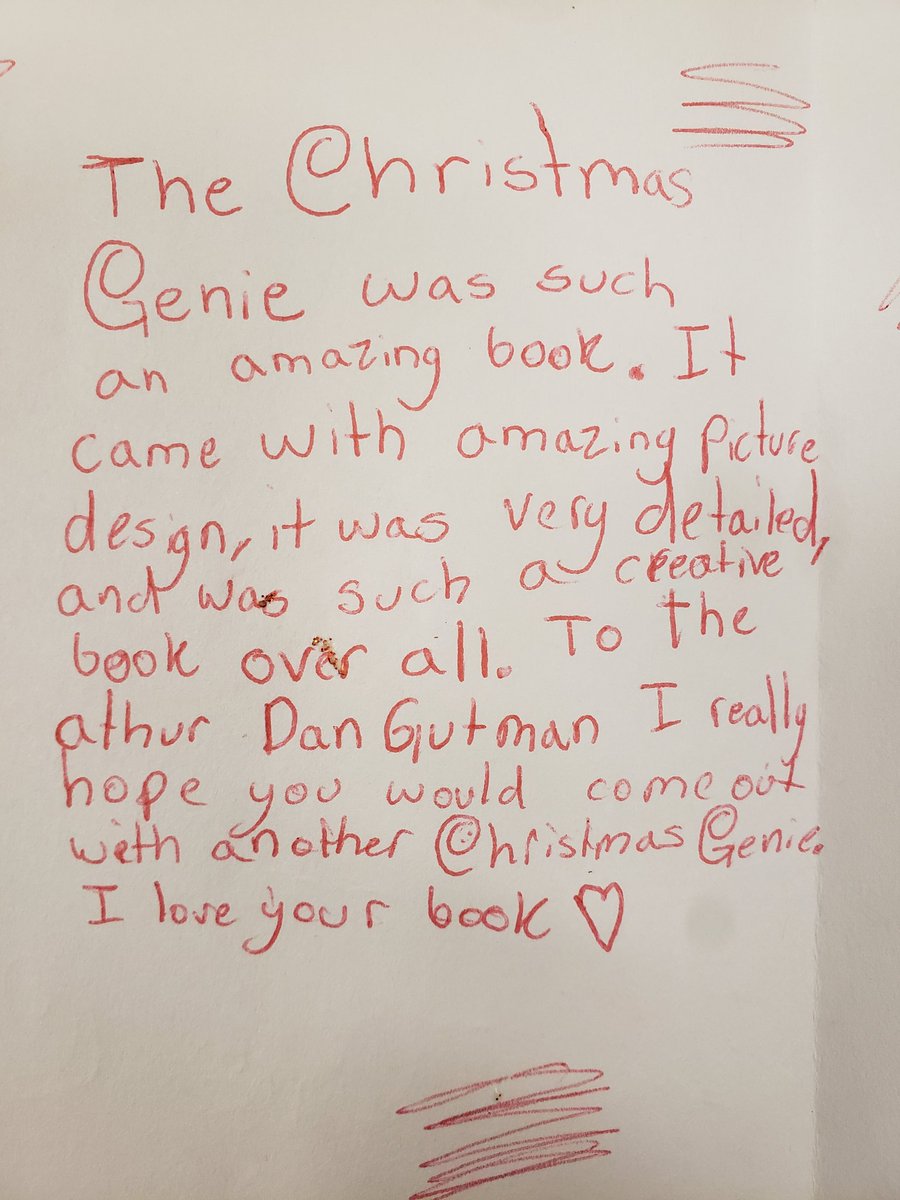 The Christmas
Genie was such
an amazing book. It
came with amazing picture
design, it was very detailed,
and was such a creative
book over all. To the
athur Dan Gutman I really
hope you would come out
with another Christmas Genie.
I love your book ♡